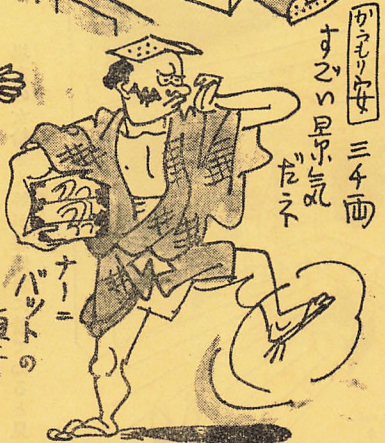 かうもり安
三千両
すごい景気
だネ
ナーニ
バットの